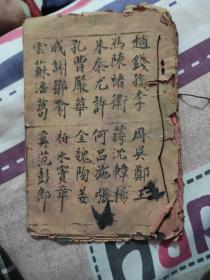 趙錢孫李周吳鄭王
馮陳褚衛蔣沈韓楊
朱秦尤許何呂施張
孔曹嚴華金魏陶姜
戚謝鄒喻柏水竇章
雲蘇潘葛奚范彭郎